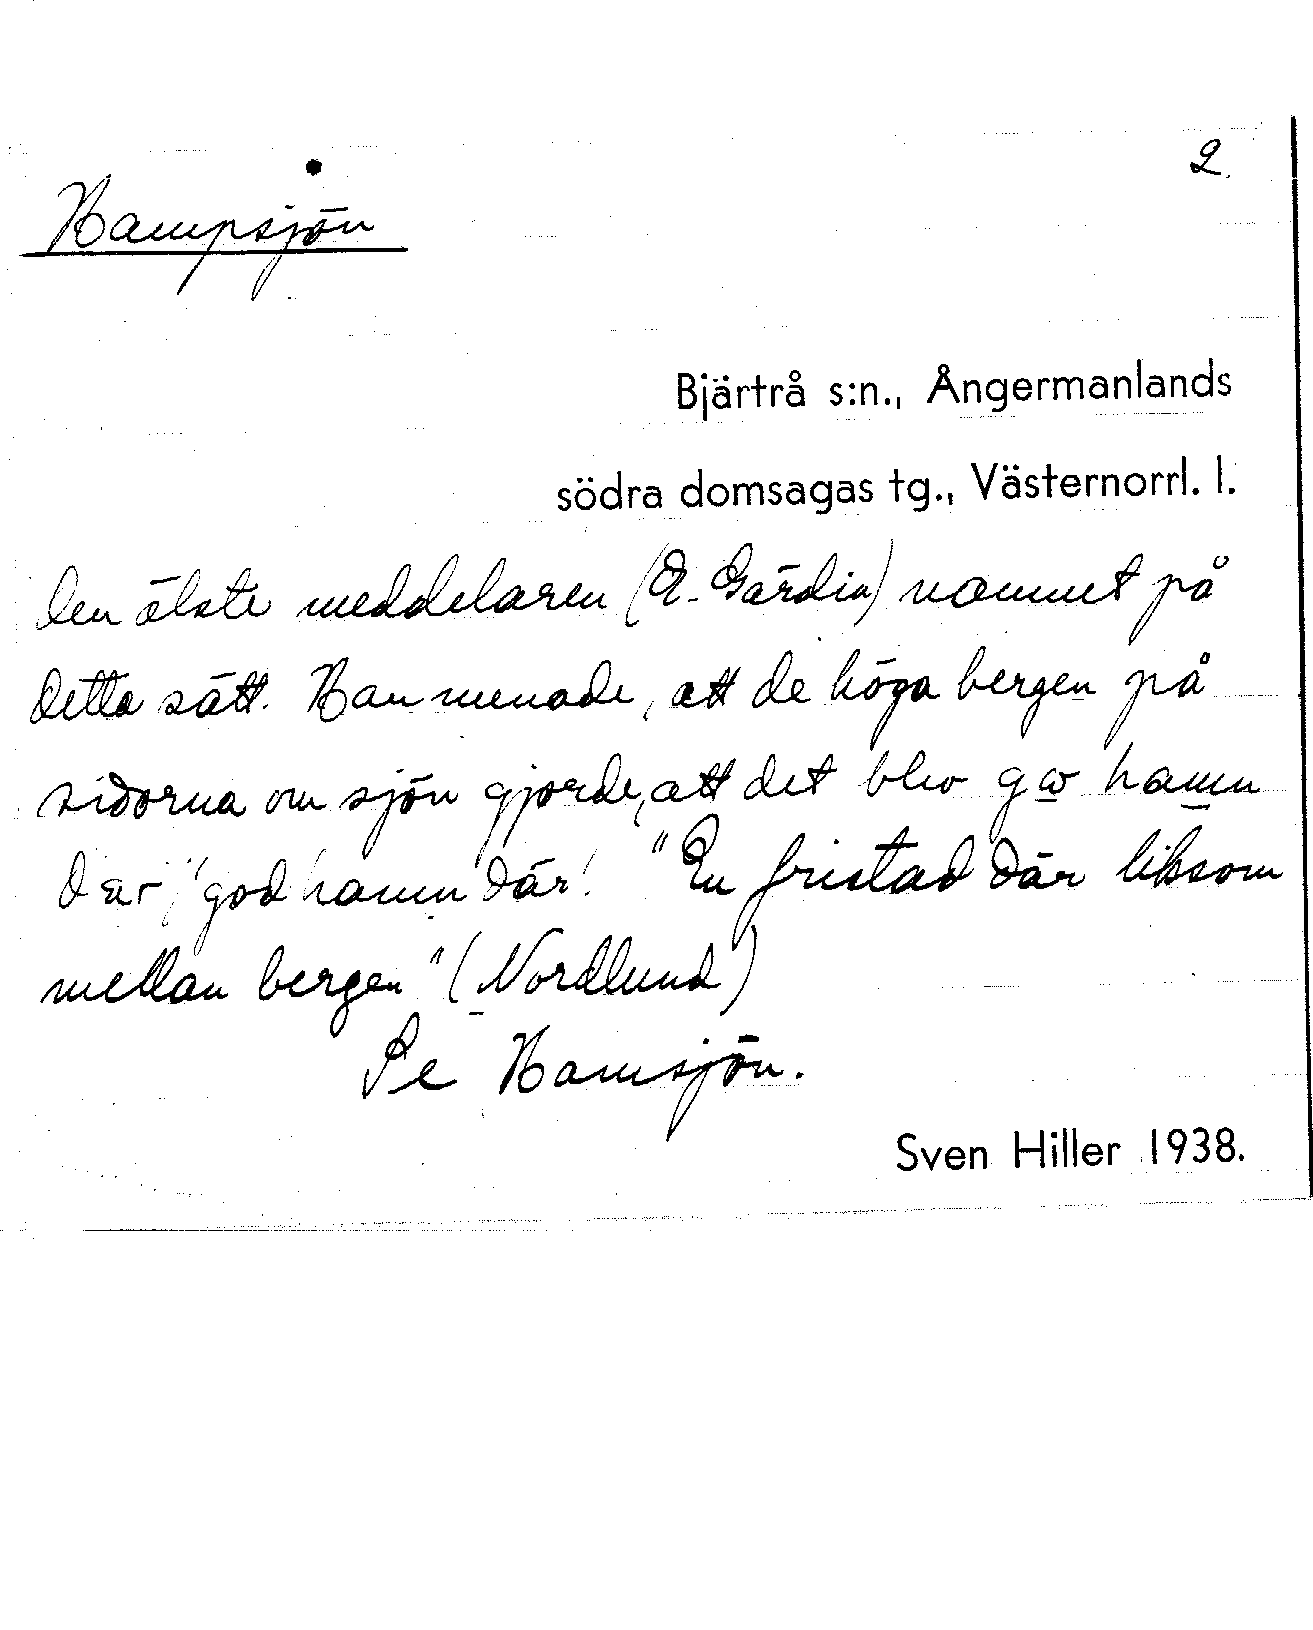 2.
Hampsjön
Bjärtrå s:n., Ångermanlands
södra domsagas tg., Västernorrl. l.
Den älste meddelaren (E. Gärdin) namnet på
detta sätt. Han menade, att de höga bergen på
sidorna om sjön gjorde, att det blev gω hamn
där, 'god hamn där'. "En fristad där liksom
mellan bergen" (Nordlund)
Se Hamsjön.
Sven Hiller 1938.